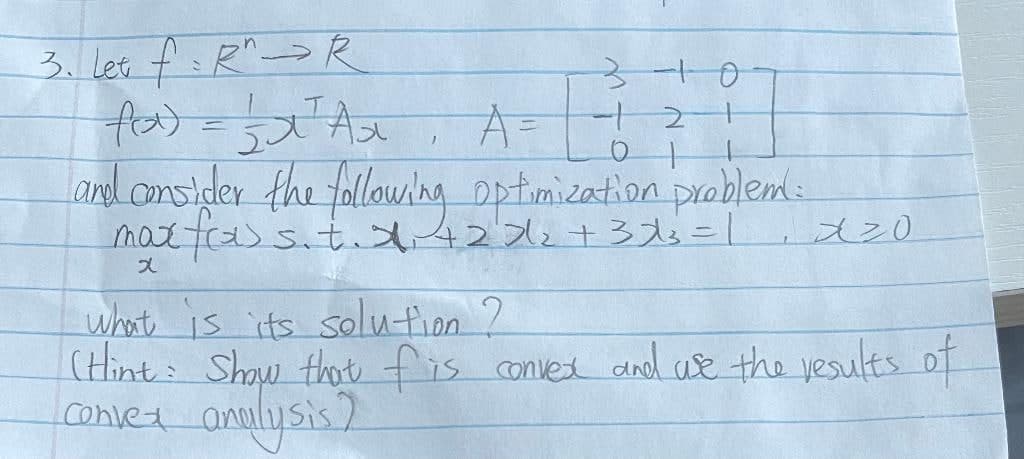 3. Let f : Rⁿ → R
f(x) = 1/2 xᵀAx , A = [3 -1 0
-1 2 1
0 1 1]
and consider the following optimization problem:
max f(x) s.t. x₁ + 2x₂ + 3x₃ = 1 , x ≥ 0
x
What is its solution?
(Hint: Show that f is convex and use the results of
convex analysis)